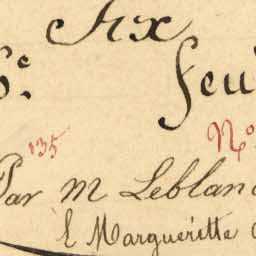 Aix
6e. feu
135 No
Par M Leblanc
& Marguerette